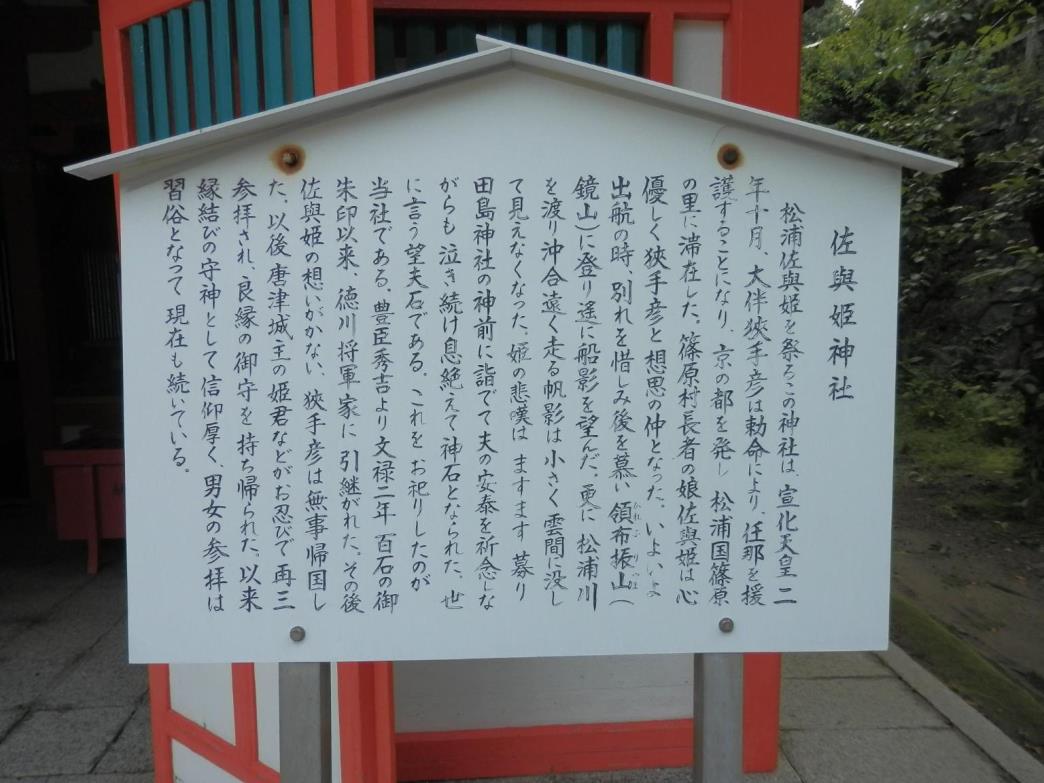 佐與姫神社
松浦佐與姫を祭るこの神社は、宣化天皇二
年十月、大伴狹手彦は勅命により、任那を援
護することになり、京の都を発し 松浦国篠原
の里に滞在した。篠原村長者の娘佐與姫は心
優しく狹手彦と想思の仲となった。いよいよ
出航の時、別れを惜しみ後を慕い 領布振山(
鏡山)に登り遥に船影を望んだ、更に 松浦川
を渡り沖合遠く走る帆影は小さく 雲間に没し
て見えなくなった、姫の悲嘆は ますます 募り
田島神社の神前に詣でて夫の安泰を祈念しな
がらも 泣き続け息絶えて神石となられた、世
に言う望夫石である。これを お祀りしたのが
当社である、豊臣秀吉より文禄二年 百石の御
朱印以来、徳川将軍家に 引継がれた、その後
佐與姫の想いがかない、狹手彦は無事帰国し
た、以後 唐津城主の姫君などがお忍びで 再三
参拝され、良縁の御守を 持ち帰られた、以来
縁結びの守神として信仰厚く、男女の参拝は
習俗となって 現在も続いている。